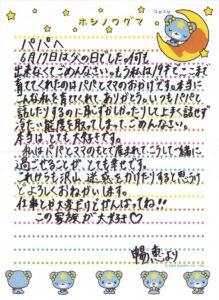 ホシノワグマ
パパへ
6月17日は父の日でしたが何も
出来なくてごめんなさい。もう私は19才でここまで
育ててくれたのはパパとママのおかげです。本当に
こんな私を育ててくれてありがとう。いつもパパと
話したりするのに恥ずかしかったりして上手く話せず
冷たい態度を取ってしまって、ごめんなさい。
本当は、とても大好きです。
私はパパとママのもとで産まれてこうして一緒に
過ごせることが、とても幸せです。
これからも沢山、迷惑をかけたりすると思うけど
よろしくおねがいします。
仕事とか大変だけどがんばってね!!
この家族が大好き♡
暢恵より